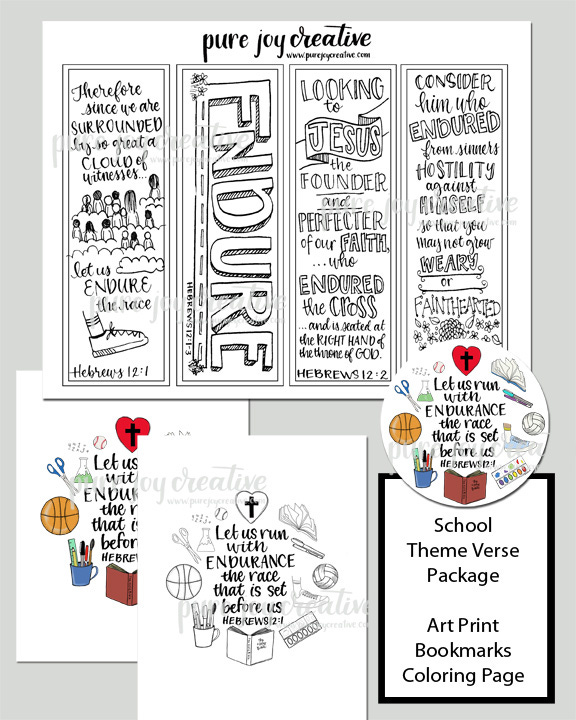 pure joy creative
www.purejoycreative.com
Therefore
since we are
SURROUNDED
by so great a
CLOUD of
witnesses...
let us
ENDURE
the race
Hebrews 12:1
ENDURE
HEBREWS 12:1-3
LOOKING
to
JESUS
the
FOUNDER
and
PERFECTER
of our FAITH,
...who
ENDURED
the CROSS
...and is seated at
the RIGHT HAND of
the throne of GOD.
HEBREWS 12:2
CONSIDER
him who
ENDURED
from sinners
HOSTILITY
against
HIMSELF
so that you
may not grow
WEARY
or
FAINTHEARTED
pure joy creative
www.purejoycreative.com
pure joy creative
www.purejoycreative.com
Let us run
with
ENDURANCE
the race
that is set
before us
HEBREWS 12:1
pure joy creative
Let us
with
ENDURA
the r
that is
before
HEBREWS
pure joy creative
www.purejoycreative.com
Let us run
with
ENDURANCE
the race
that is set
before us
HEBREWS 12:1
pure joy creative
www.purejoycreative.com
School
Theme Verse
Package
Art Print
Bookmarks
Coloring Page